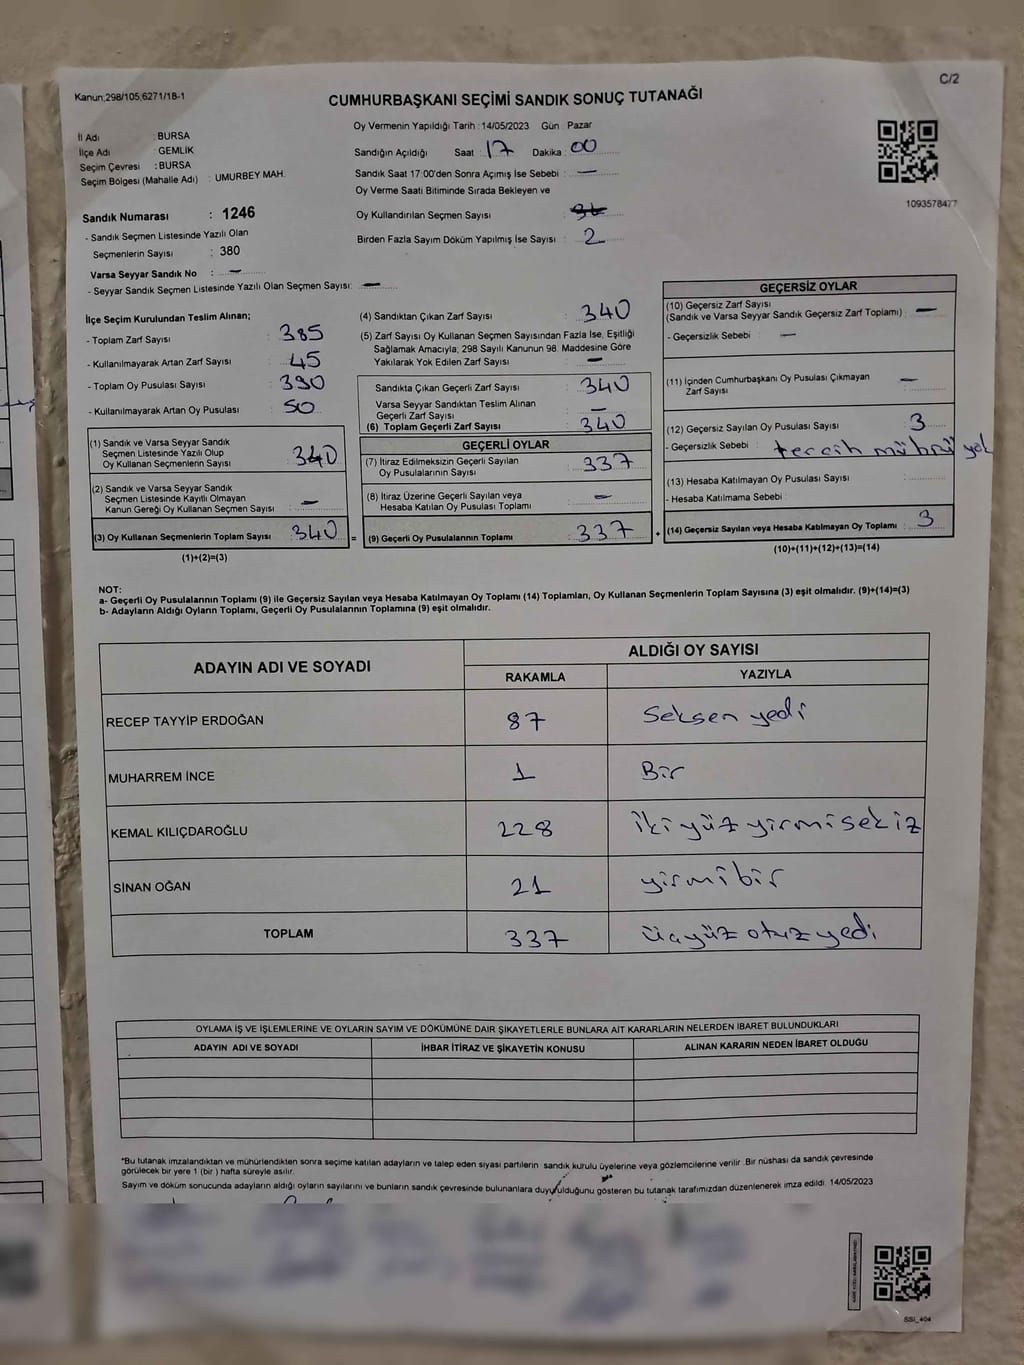 C/2
Kanun;298/105,6271/18-1
CUMHURBAŞKANI SEÇİMİ SANDIK SONUÇ TUTANAĞI
İl Adı : BURSA
İlçe Adı : GEMLİK
Seçim Çevresi : BURSA
Seçim Bölgesi (Mahalle Adı) : UMURBEY MAH.
Oy Vermenin Yapıldığı Tarih :14/05/2023 Gün : Pazar
Sandığın Açıldığı Saat : 17 Dakika : 00
Sandık Saat 17:00'den Sonra Açımış İse Sebebi : —
Oy Verme Saati Bitiminde Sırada Bekleyen ve
Oy Kullandırılan Seçmen Sayısı :
Birden Fazla Sayım Döküm Yapılmış İse Sayısı : 2
1093578477
Sandık Numarası : 1246
- Sandık Seçmen Listesinde Yazılı Olan
Seçmenlerin Sayısı : 380
Varsa Seyyar Sandık No : —
- Seyyar Sandık Seçmen Listesinde Yazılı Olan Seçmen Sayısı: —
İlçe Seçim Kurulundan Teslim Alınan;
- Toplam Zarf Sayısı : 385
- Kullanılmayarak Artan Zarf Sayısı : 45
- Toplam Oy Pusulası Sayısı : 390
- Kullanılmayarak Artan Oy Pusulası : 50
(1) Sandık ve Varsa Seyyar Sandık
Seçmen Listesinde Yazılı Olup
Oy Kullanan Seçmenlerin Sayısı : 340
(2) Sandık ve Varsa Seyyar Sandık
Seçmen Listesinde Kayıtlı Olmayan
Kanun Gereği Oy Kullanan Seçmen Sayısı : —
(3) Oy Kullanan Seçmenlerin Toplam Sayısı : 340
(1)+(2)=(3)
(4) Sandıktan Çıkan Zarf Sayısı : 340
(5) Zarf Sayısı Oy Kullanan Seçmen Sayısından Fazla İse, Eşitliği
Sağlamak Amacıyla; 298 Sayılı Kanunun 98. Maddesine Göre
Yakılarak Yok Edilen Zarf Sayısı : —
Sandıkta Çıkan Geçerli Zarf Sayısı : 340
Varsa Seyyar Sandıktan Teslim Alınan
Geçerli Zarf Sayısı : —
(6) Toplam Geçerli Zarf Sayısı : 340
GEÇERLİ OYLAR
(7) İtiraz Edilmeksizin Geçerli Sayılan
Oy Pusulalarının Sayısı : 337
(8) İtiraz Üzerine Geçerli Sayılan veya
Hesaba Katılan Oy Pusulası Toplamı : —
= (9) Geçerli Oy Pusulalarının Toplamı : 337 +
GEÇERSİZ OYLAR
(10) Geçersiz Zarf Sayısı
(Sandık ve Varsa Seyyar Sandık Geçersiz Zarf Toplamı) : —
- Geçersizlik Sebebi : —
(11) İçinden Cumhurbaşkanı Oy Pusulası Çıkmayan
Zarf Sayısı : —
(12) Geçersiz Sayılan Oy Pusulası Sayısı : 3
- Geçersizlik Sebebi : tercih mührü yok
(13) Hesaba Katılmayan Oy Pusulası Sayısı :
- Hesaba Katılmama Sebebi :
(14) Geçersiz Sayılan veya Hesaba Katılmayan Oy Toplamı : 3
(10)+(11)+(12)+(13)=(14)
NOT:
a- Geçerli Oy Pusulalarının Toplamı (9) ile Geçersiz Sayılan veya Hesaba Katılmayan Oy Toplamı (14) Toplamları, Oy Kullanan Seçmenlerin Toplam Sayısına (3) eşit olmalıdır. (9)+(14)=(3)
b- Adayların Aldığı Oyların Toplamı, Geçerli Oy Pusulalarının Toplamına (9) eşit olmalıdır.
ADAYIN ADI VE SOYADI ALDIĞI OY SAYISI
RAKAMLA YAZIYLA
RECEP TAYYİP ERDOĞAN 87 Seksen yedi
MUHARREM İNCE 1 Bir
KEMAL KILIÇDAROĞLU 228 iki yüz yirmi sekiz
SİNAN OĞAN 21 yirmi bir
TOPLAM 337 üçyüz otuz yedi
OYLAMA İŞ VE İŞLEMLERİNE VE OYLARIN SAYIM VE DÖKÜMÜNE DAİR ŞİKAYETLERLE BUNLARA AİT KARARLARIN NELERDEN İBARET BULUNDUKLARI
ADAYIN ADI VE SOYADI İHBAR İTİRAZ VE ŞİKAYETİN KONUSU ALINAN KARARIN NEDEN İBARET OLDUĞU
*Bu tutanak imzalandıktan ve mühürlendikten sonra seçime katılan adayların ve talep eden siyasi partilerin sandık kurulu üyelerine veya gözlemcilerine verilir. Bir nüshası da sandık çevresinde
görülecek bir yere 1 (bir ) hafta süreyle asılır.
Sayım ve döküm sonucunda adayların aldığı oyların sayılarını ve bunların sandık çevresinde bulunanlara duyurulduğunu gösteren bu tutanak tarafımızdan düzenlenerek imza edildi. 14/05/2023
SSi_404